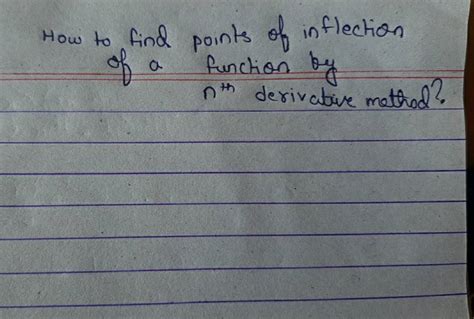 How to find points of inflection
of a function by
nth derivative method?